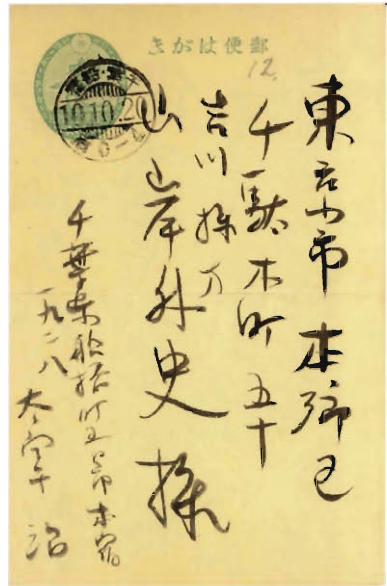 郵便はがき
12.
10.10.20
東京市本郷区
千駄木町五十
吉川様方
山岸外史様
千葉県船橋町五日市本宿
一九二八
太宰治